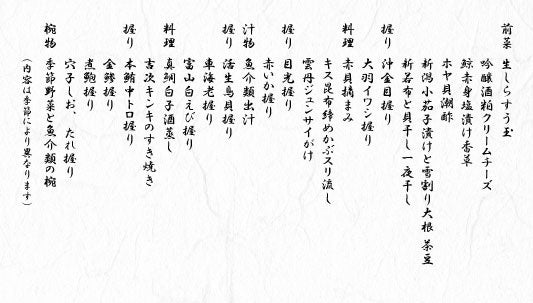 前菜 生しらすう玉
吟醸酒粕クリームチーズ
鯨赤身塩漬け香草
ホヤ貝潮酢
新潟小茄子漬けと雪割り大根 茶豆
新若布と貝干し一夜干し
握り 沖金目握り
大羽イワシ握り
料理 赤貝摘まみ
キス昆布締めかぶスリ流し
雲丹ジュンサイがけ
握り 目光握り
赤いか握り
汁物 魚介類出汁
握り 活生鳥貝握り
車海老握り
富山白えび握り
料理 真鯛白子酒蒸し
吉次キンキのすき焼き
握り 本鮪中トロ握り
金鯵握り
煮鮑握り
穴子しお、たれ握り
椀物 季節野菜と魚介類の椀
(内容は季節により異なります)